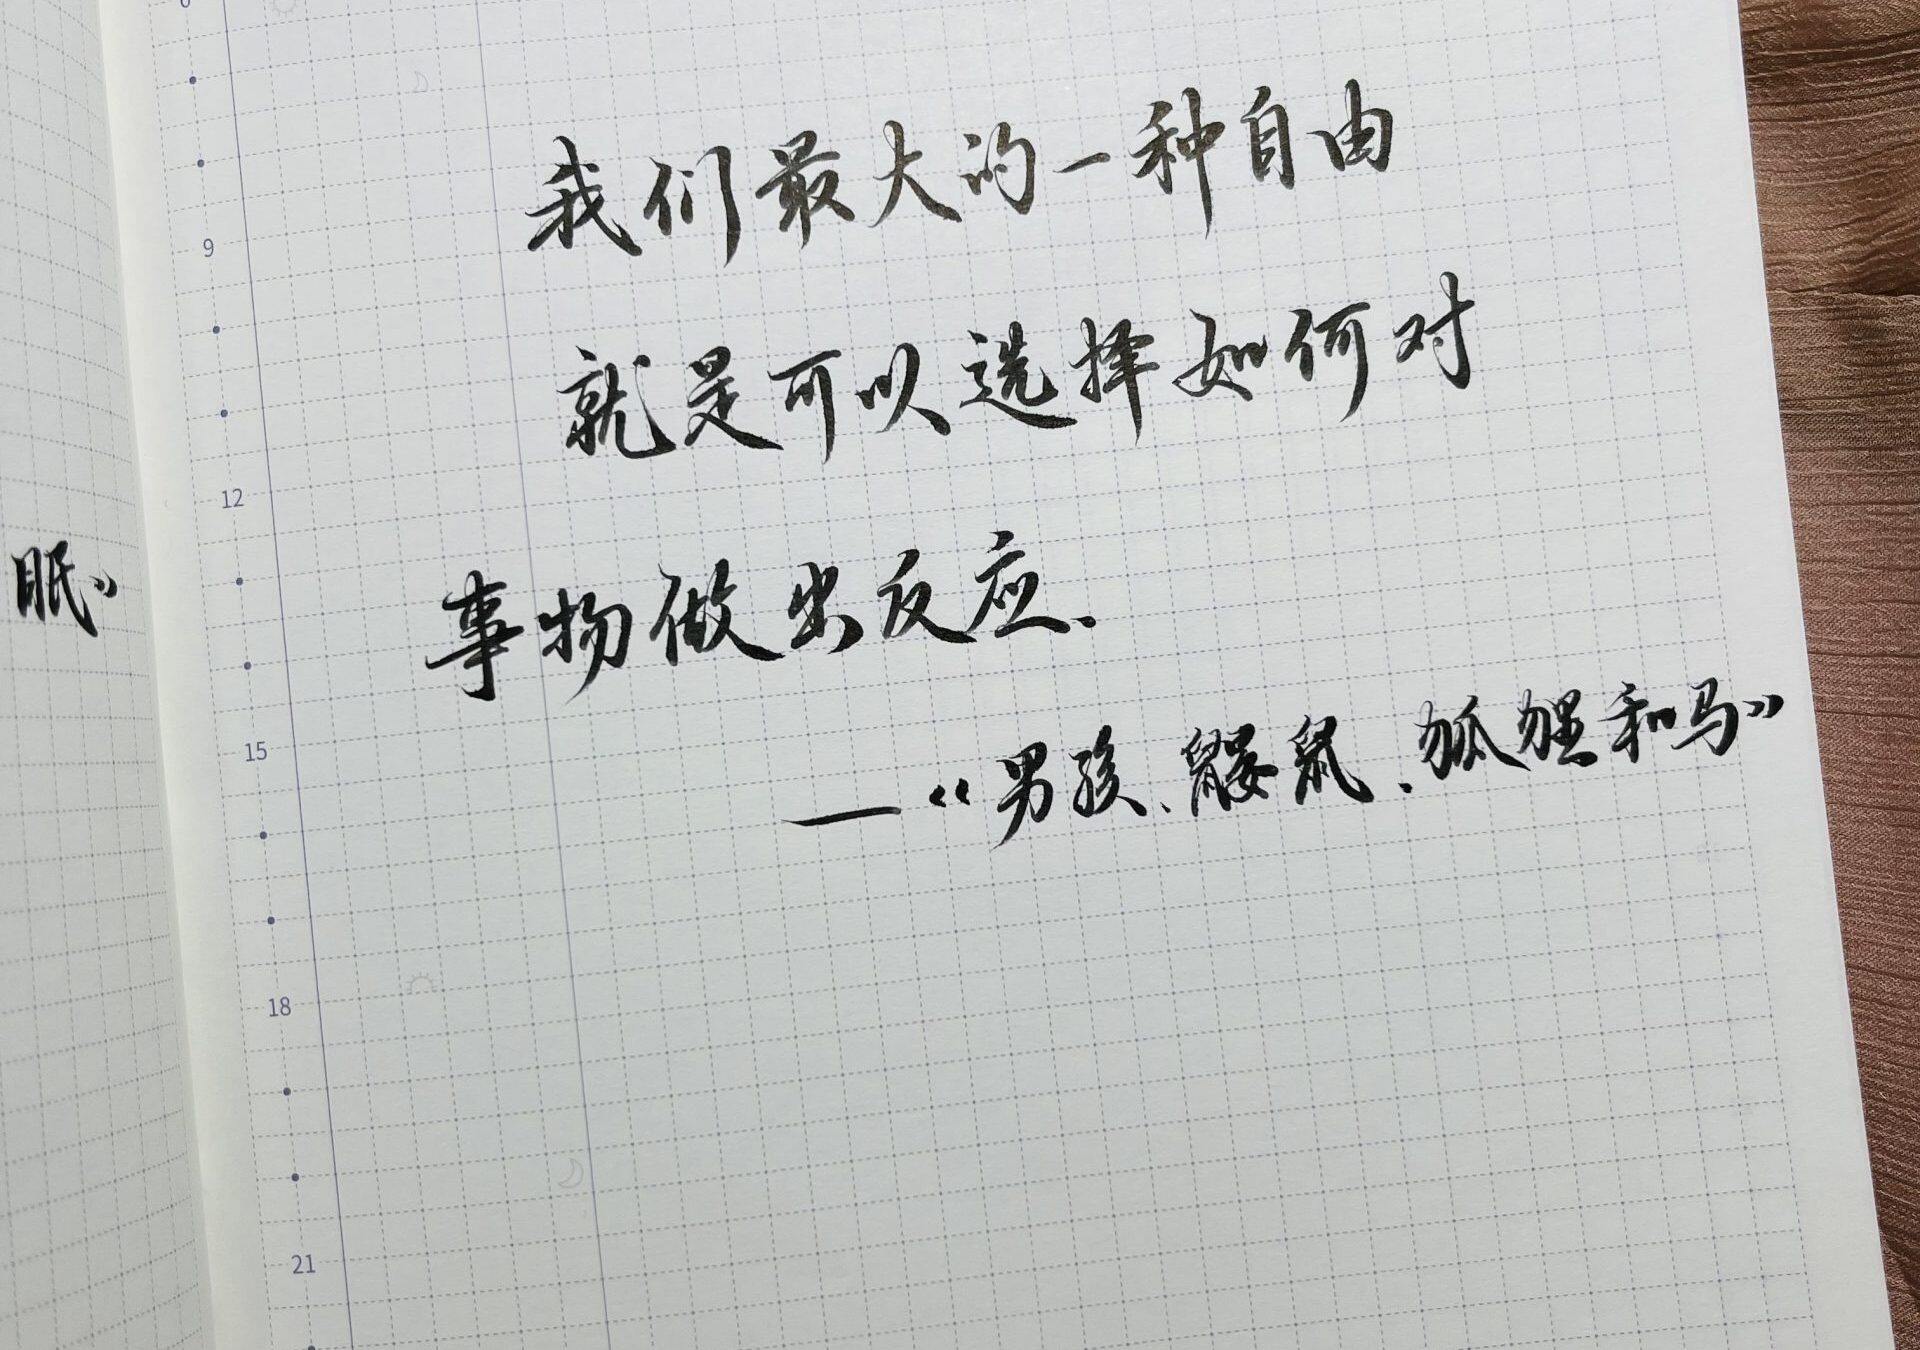 眠》
我们最大的一种自由
就是可以选择如何对
事物做出反应.
—《男孩、鼹鼠、狐狸和马》
9
12
15
18
21